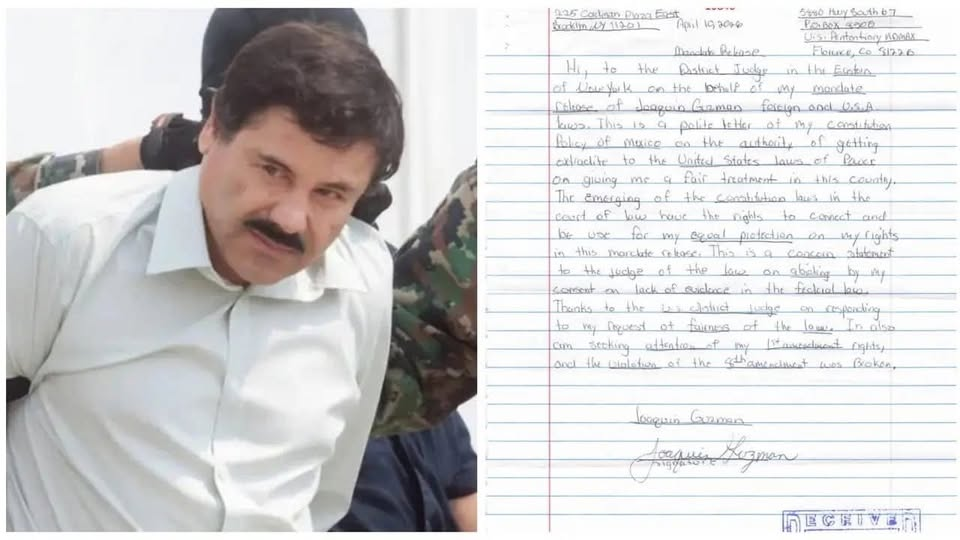 225 Cadman Plaza East
Brooklyn, NY 11201
April 10, 2026
5880 Hwy South 67
P.O. BOX 8500
U.S. Penitentiary ADMAX
Florence, CO 81226
Mandate Release
Hi, to the District Judge in the Eastern
of New York on the behalf of my mandate
release of Joaquin Guzman foreign and U.S.A
laws. This is a polite letter of my constitution
Policy of mexico on the authority of getting
extradite to the United States laws of Power
on giving me a fair treatment in this country.
The emerging of the constitution laws in the
court of law have the rights to connect and
be use for my equal protection on my rights
in this mandate release. This is a concern statement
to the judge of the law on abiding by my
consent on lack of evidence in the federal law.
Thanks to the U.S district Judge on responding
to my request of fairness of the law. In also
am seeking attention of my 1st amendment rights,
and the violation of the 8th amendment was Broken.
Joaquin Guzman
Joaquin Guzman
signature
RECEIVED